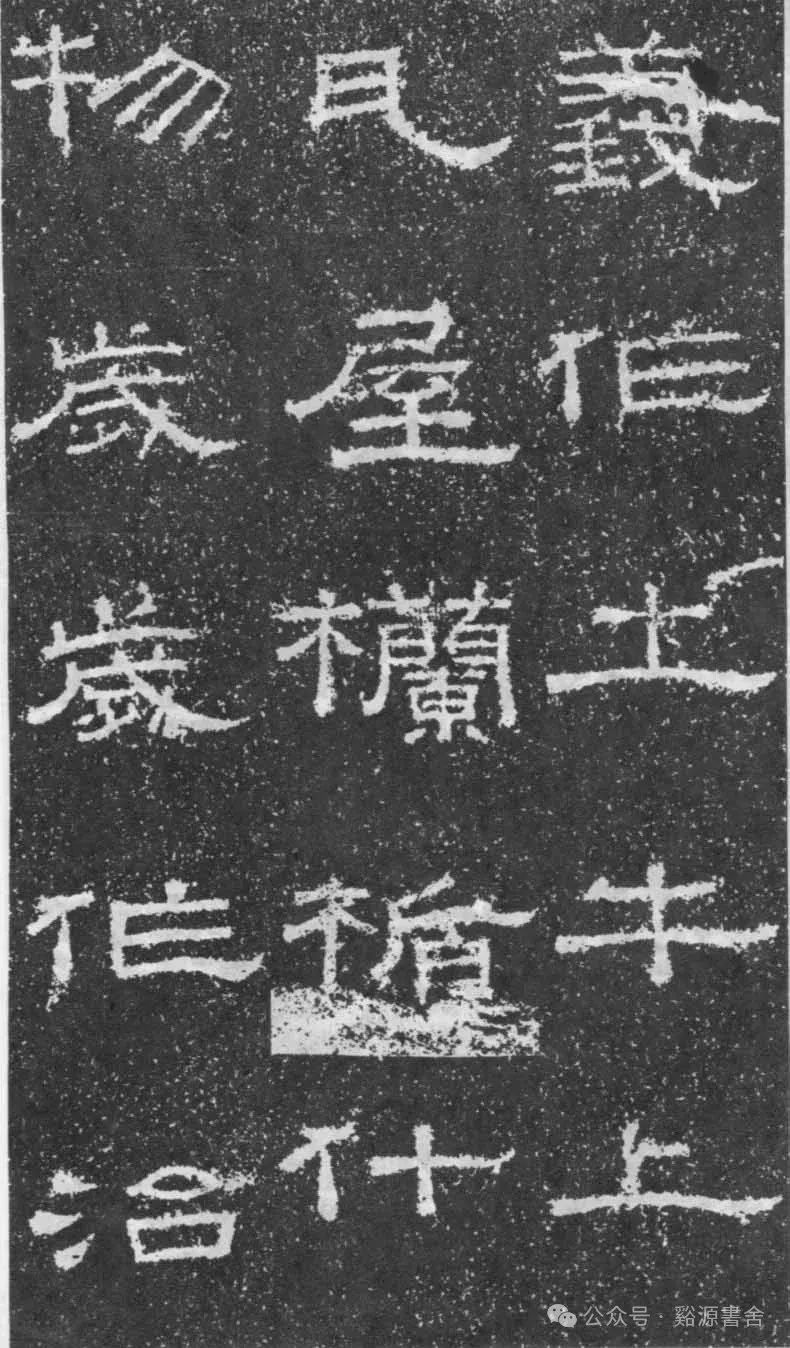 義作土牛上
瓦屋欄楯什
物歲歲作治
公众号·谿源書舍